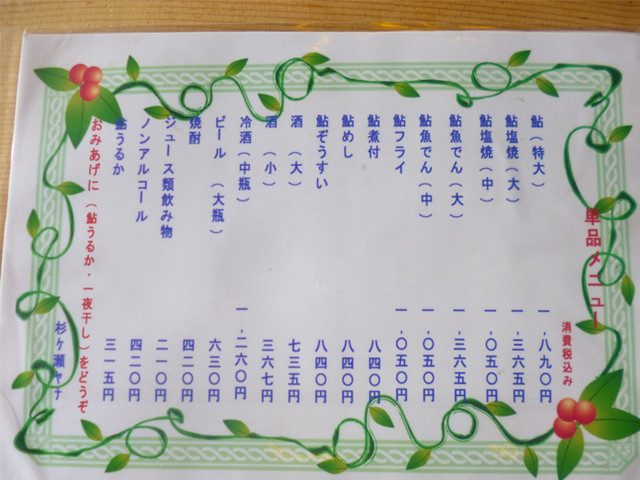 単品メニュー
消費税込み
鮎(特大) 一,八九〇円
鮎塩焼(大) 一,三六五円
鮎塩焼(中) 一,〇五〇円
鮎魚でん(大) 一,三六五円
鮎魚でん(中) 一,〇五〇円
鮎フライ 一,〇五〇円
鮎煮付 八四〇円
鮎めし 八四〇円
鮎ぞうすい 八四〇円
酒(大) 七三五円
酒(小) 三六七円
冷酒(中瓶) 一,二六〇円
ビール(大瓶) 六三〇円
焼酎 四二〇円
ジュース類飲み物 二一〇円
ノンアルコール 四二〇円
鮎うるか 三一五円
おみあげに(鮎うるか・一夜干し)をどうぞ
杉ヶ瀬ヤナ